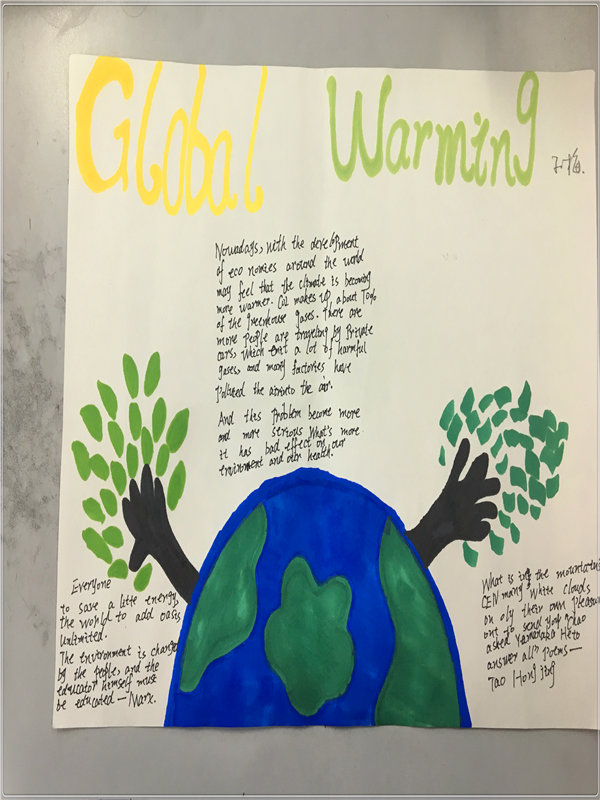 Global Warming
Nowadays, with the development
of eco nomies around the world
may feel that the climate is becoming
more warmer. Co2 makes up about 70%
of the greenhouse gases. There are
more people are traveling by private
cars, which emit a lot of harmful
gases, and many factories have
polluted the the air.
And this problem become more
and more serious. What's more
it has bad effect on our
environment and our health.
Everyone
to save a litte energy,
the world to add oasis
unlimited.
The environment is changed
by the people, and the
educator himself must
be educated — Marx.
What is in the mountains
many white clouds
on oly their own pleasure
to send
asked
answer all" Poems —
Tao Hong jing